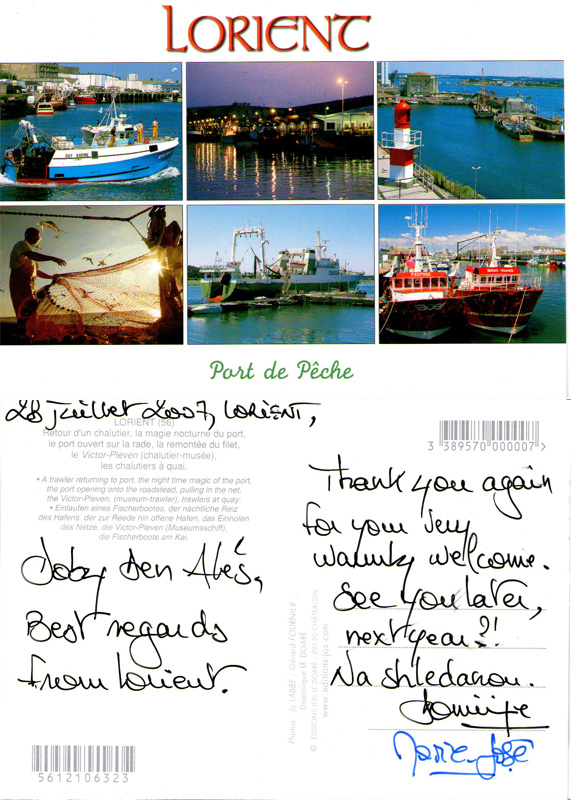 LORIENT
Port de Pêche
28 juillet 2007, LORIENT,
LORIENT (56)
Retour d'un chalutier, la magie nocturne du port,
le port ouvert sur la rade, la remontée du filet,
le Victor-Pleven (chalutier-musée),
les chalutiers à quai.
• A trawler returning to port, the night time magic of the port,
the port opening onto the roadstead, pulling in the net,
the Victor-Pleven, (museum-trawler), trawlers at quay.
• Einlaufen eines Fischerbootes, der nächtliche Reiz
des Hafens, der zur Reede hin offene Hafen, das Einholen
des Netzes, die Victor-Pleven (Museumsschiff),
die Fischerboote am Kai.
Best regards
from Lorient.
5612106323
Photos : Jo LABBÉ, Gérard FOURNIER,
Dominique LE DOARÉ
© ÉDITIONS JOS LE DOARÉ - 29150 CHÂTEAULIN
www.editions-jos.com
3 389570 000007 >
Thank you again
for your very
warmly welcome.
See you later,
next year?!
Na shledanou.
Dominique
Marie-José